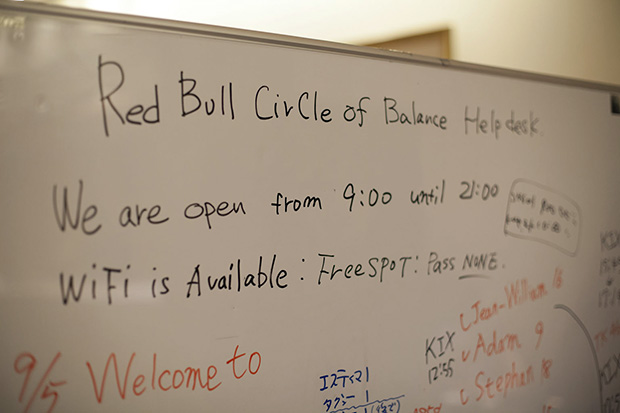 Red Bull Circle of Balance Helpdesk.
We are open from 9:00 until 21:00
WiFi is Available : FreeSPOT : Pass NONE.
9/5 Welcome to
エスティマ 1
タクシー 1
KIX
12:55
Jean-William 16
Adam 9
Stephan 18